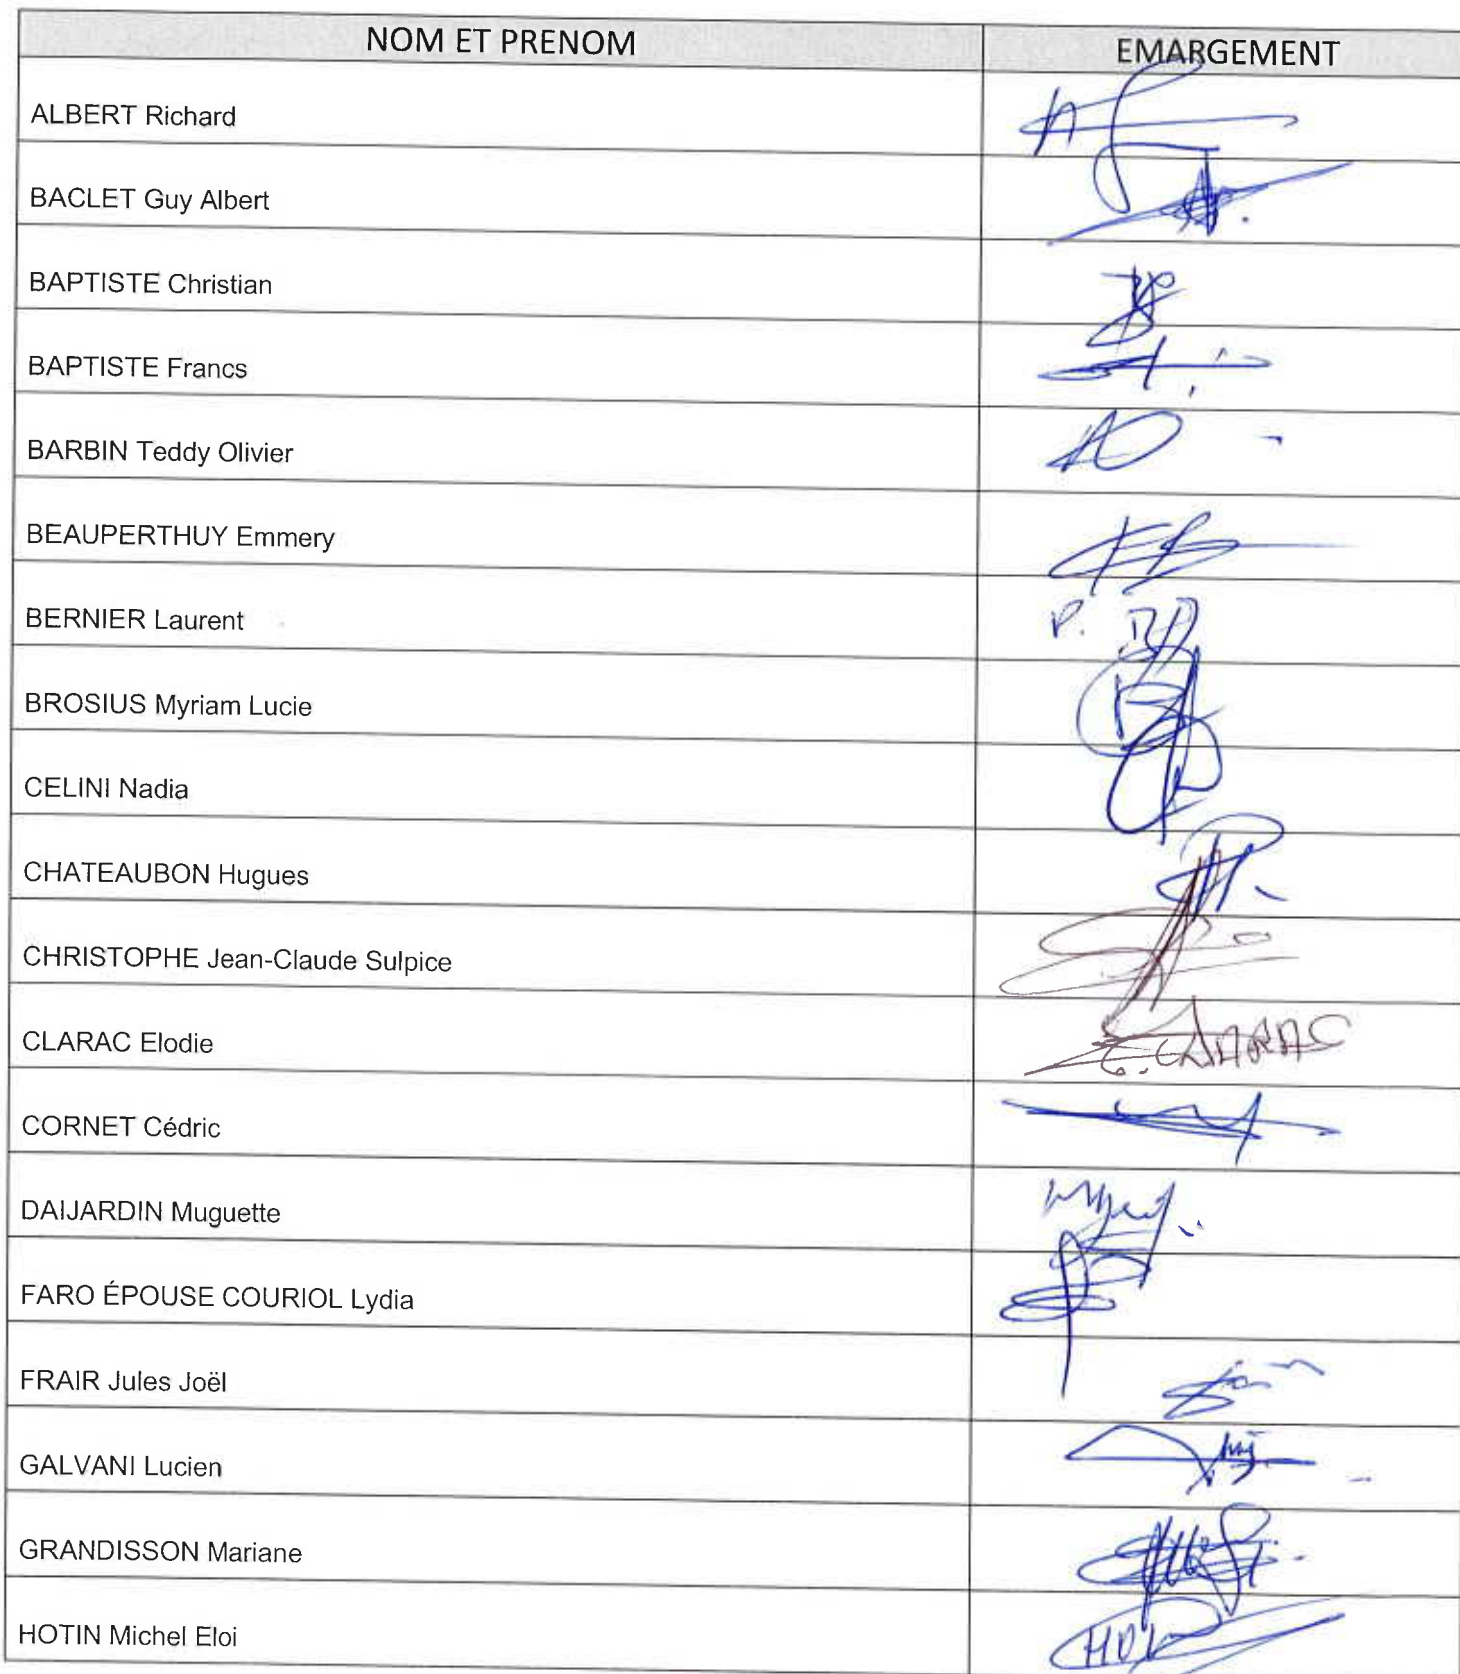 NOM ET PRENOM EMARGEMENT
ALBERT Richard
BACLET Guy Albert
BAPTISTE Christian
BAPTISTE Francs
BARBIN Teddy Olivier
BEAUPERTHUY Emmery
BERNIER Laurent P.
BROSIUS Myriam Lucie
CELINI Nadia
CHATEAUBON Hugues
CHRISTOPHE Jean-Claude Sulpice
CLARAC Elodie E. CLARAC
CORNET Cédric
DAIJARDIN Muguette
FARO ÉPOUSE COURIOL Lydia
FRAIR Jules Joël
GALVANI Lucien
GRANDISSON Mariane
HOTIN Michel Eloi